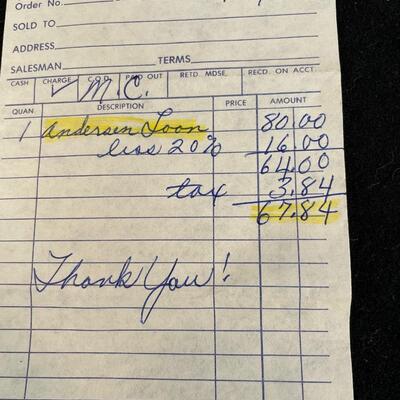 Order No.
SOLD TO
ADDRESS
SALESMAN TERMS
CASH CHARGE C.O.D. PAID OUT RETD. MDSE. RECD. ON ACCT.
✓ M.C.
QUAN. DESCRIPTION PRICE AMOUNT
1 Andersen Loon 80.00
less 20% 16.00
64.00
tax 3.84
67.84
Thank You!